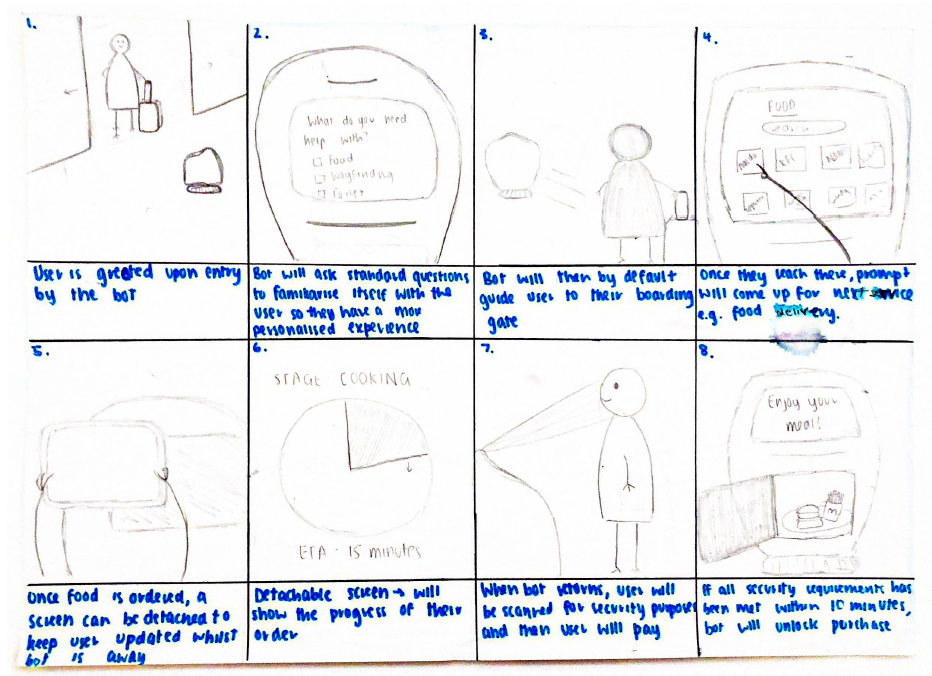 1.
User is greeted upon entry
by the bot
2.
What do you need
help with?
Food
Wayfinding
Toilet
Bot will ask standard questions
to familiarise itself with the
user so they have a more
personalised experience
3.
Bot will then by default
guide user to their boarding
gate
4.
FOOD
Search
KFC
Once they reach there, prompt
will come up for next service
e.g. food delivery.
5.
Once food is ordered, a
screen can be detached to
keep user updated whilst
bot is away
6.
STAGE COOKING
ETA - 15 minutes
Detachable screen → will
show the progress of their
order
7.
When bot returns, user will
be scanned for security purposes
and then user will pay
8.
Enjoy your
meal!
M
If all security requirements has
been met within 10 minutes,
bot will unlock purchase